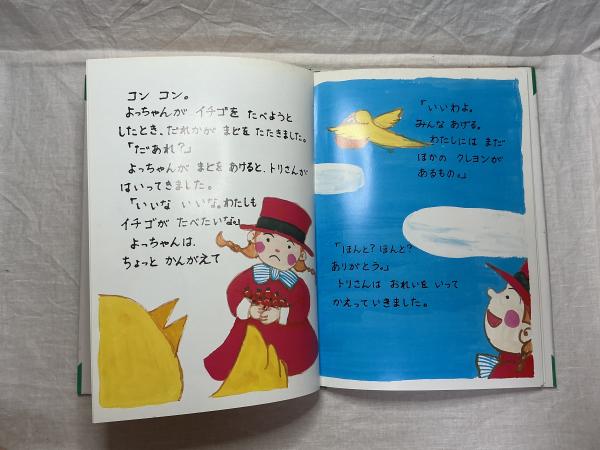 コン コン。
よっちゃんが イチゴを たべようと
したとき、だれかが まどを たたきました。
「だあれ?」
よっちゃんが まどを あけると、トリさんが
はいってきました。
「いいな いいな。わたしも
イチゴが たべたいな」
よっちゃんは、
ちょっと かんがえて
「いいわよ。
みんな あげる。
わたしには まだ
ほかの クレヨンが
あるもの。」
「ほんと?ほんと?
ありがとう。」
トリさんは おれいを いって
かえっていきました。